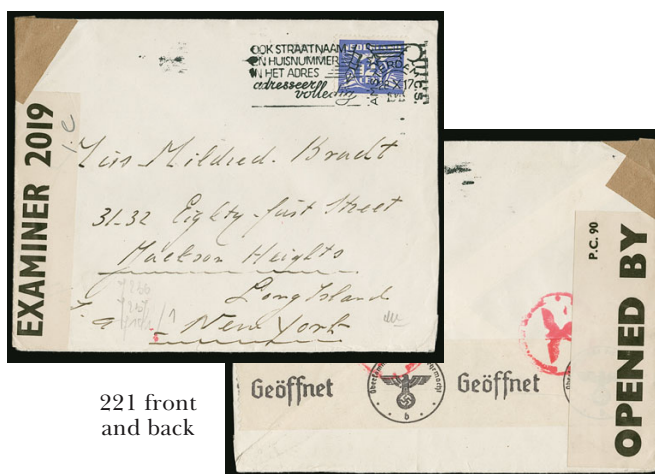 OOK STRAATNAAM
EN HUISNUMMER
IN HET ADRES
adresseer
volledig
EXAMINER 2019
Miss Mildred. Brandt
31-32 Eighty-first Street
Jackson Heights
Long Island
New York
P.C. 90
OPENED BY
Geöffnet
Geöffnet
b
221 front
and back